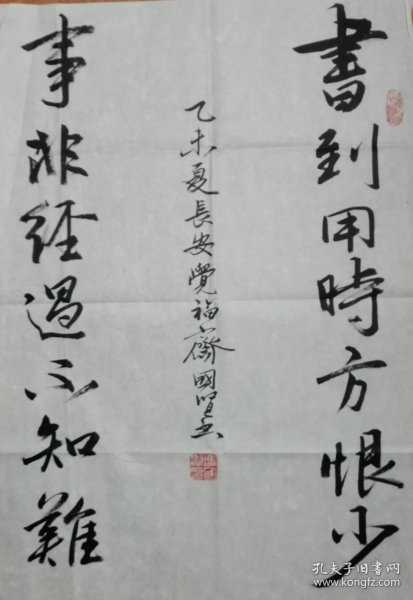 書到用時方恨少
事非經過不知難
乙未夏長安覺福齋國賢書
孔夫子旧书网
www.kongfz.com